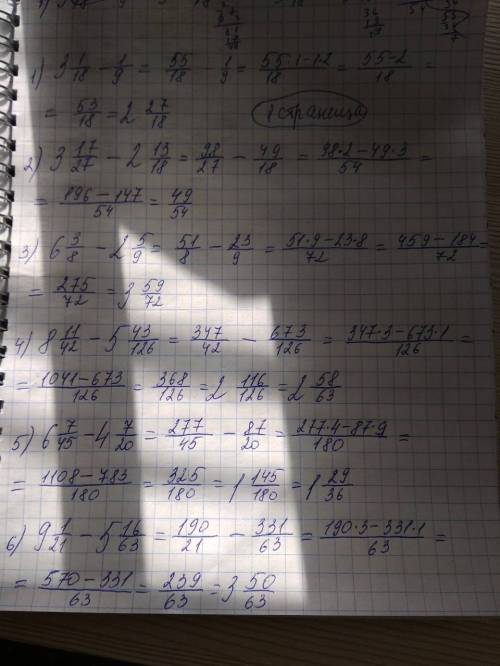 1) 3 1/18 − 1/9 = 55/18 − 1/9 = (55·1−1·2)/18 = (55−2)/18 =
= 53/18 = 2 27/18
1 страница
2) 3 17/27 − 2 13/18 = 98/27 − 49/18 = (98·2−49·3)/54 =
= (196−147)/54 = 49/54
3) 6 3/8 − 2 5/9 = 51/8 − 23/9 = (51·9−23·8)/72 = (459−184)/72 =
= 275/72 = 3 59/72
4) 8 11/42 − 5 43/126 = 347/42 − 673/126 = (347·3−673·1)/126 =
= (1041−673)/126 = 368/126 = 2 116/126 = 2 58/63
5) 6 7/45 − 4 7/20 = 277/45 − 87/20 = (277·4−87·9)/180 =
= (1108−783)/180 = 325/180 = 1 145/180 = 1 29/36
6) 9 1/21 − 5 16/63 = 190/21 − 331/63 = (190·3−331·1)/63 =
= (570−331)/63 = 239/63 = 3 50/63